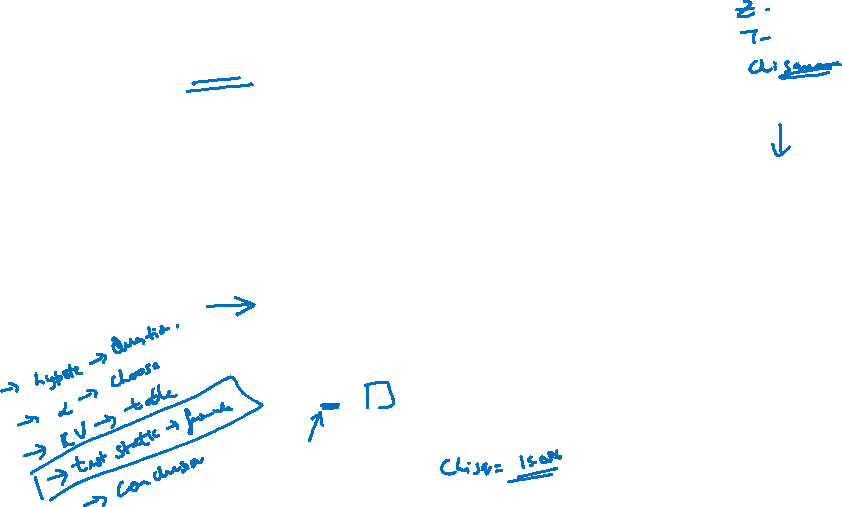 Z -
T -
Chi square
→ hypote → Question.
→ α → choose
→ CV → table
→ test static → formula
→ conclusion
Chisq =